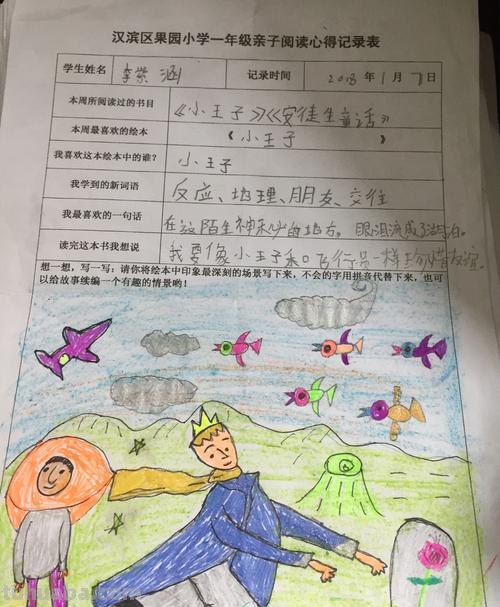 汉滨区果园小学一年级亲子阅读心得记录表
学生姓名 李紫涵 记录时间 2018年1月7日
本周所阅读过的书目 《小王子》《安徒生童话》
本周最喜欢的绘本 《小王子》
我喜欢这本绘本中的谁? 小王子
我学到的新词语 反应、地理、朋友、交往
我最喜欢的一句话 在这陌生神秘的地方。眼泪流成了湖泊。
读完这本书我想说 我要像小王子和飞行员一样珍惜友谊。
想一想,写一写:请你将绘本中印象最深刻的场景写下来,不会的字用拼音代替下来,也可
以给故事续编一个有趣的情景哟!